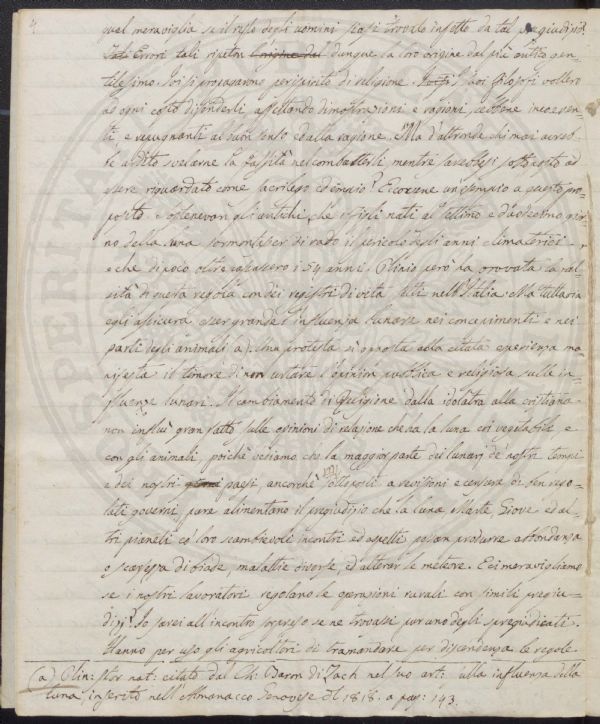 qual meraviglia se il resto degli uomini siasi trovato infetto da tal pregiudizio.
Errori tali ripeton l'origine dal dunque la loro origine dal più cutto gen-
tilesimo. Poi si procacciarono per ispirito di religione. I filosofi vollero
ad ogni costo difenderli, affettando dimostrazioni e ragioni, sebbene incoeren-
ti e repugnanti al buon senso ed alla ragione. Ma d'altronde chi mai avreb-
be ardito svelarne la falsità nel combatterli, mentre sarebbesi sottoposto ad
essere riguardato come sacrilego ed empio? Eccovene un esempio a questo pro-
posito. Sostenevan gli antichi, che i figli nati al settimo e d'ottobre gior-
no della luna sormontasser di rado il pericolo degli anni climaterici
e che di poco oltrepassassero i 54 anni. Plinio però ha provata la fal-
sità di questa regola con dei registri di vita fatti nell'Italia: Ma tuttavia
egli assicura esser grande l'influenza lunare nei concepimenti e nei
parti degli animali a). Una protesta sì opposta alla citata esperienza ma-
nifesta il timore di non urtare l'opinion pubblica e religiosa sulle in-
fluenze lunari. Il cambiamento di religione dalla idolatra alla cristiana
non influì gran fatto sulle opinioni di relazione che ha la luna coi vegetabili e
con gli animali, poichè vediamo che la maggior parte dei lunarj de' nostri tempi
e dei nostri paesi, ancorchè sottoposti a revisioni e censure di ben rego-
lati governi, pure alimentano il pregiudizio che la luna Marte, Giove ed al-
tri pianeti co' loro scambievoli incontri ed aspetti possan produrre abbondanza
o scarsezza di biade, malattie diverse, ed alterar le meteore. E ci meravigliamo
se i nostri lavoratori regolano le operazioni rurali con simili pregiu-
dizj? Io sarei all'incontro sorpreso se ne trovassi pur uno degli spregiudicati.
Hanno per uso gli agricoltori di tramandare per discendenza le regole
(a) Plin: stor nat: citato dal Ch: Baron di Zach nel suo art: sulla influenza della
luna, inserito nell'Almanacco Genovese del 1818. a pag: 143.